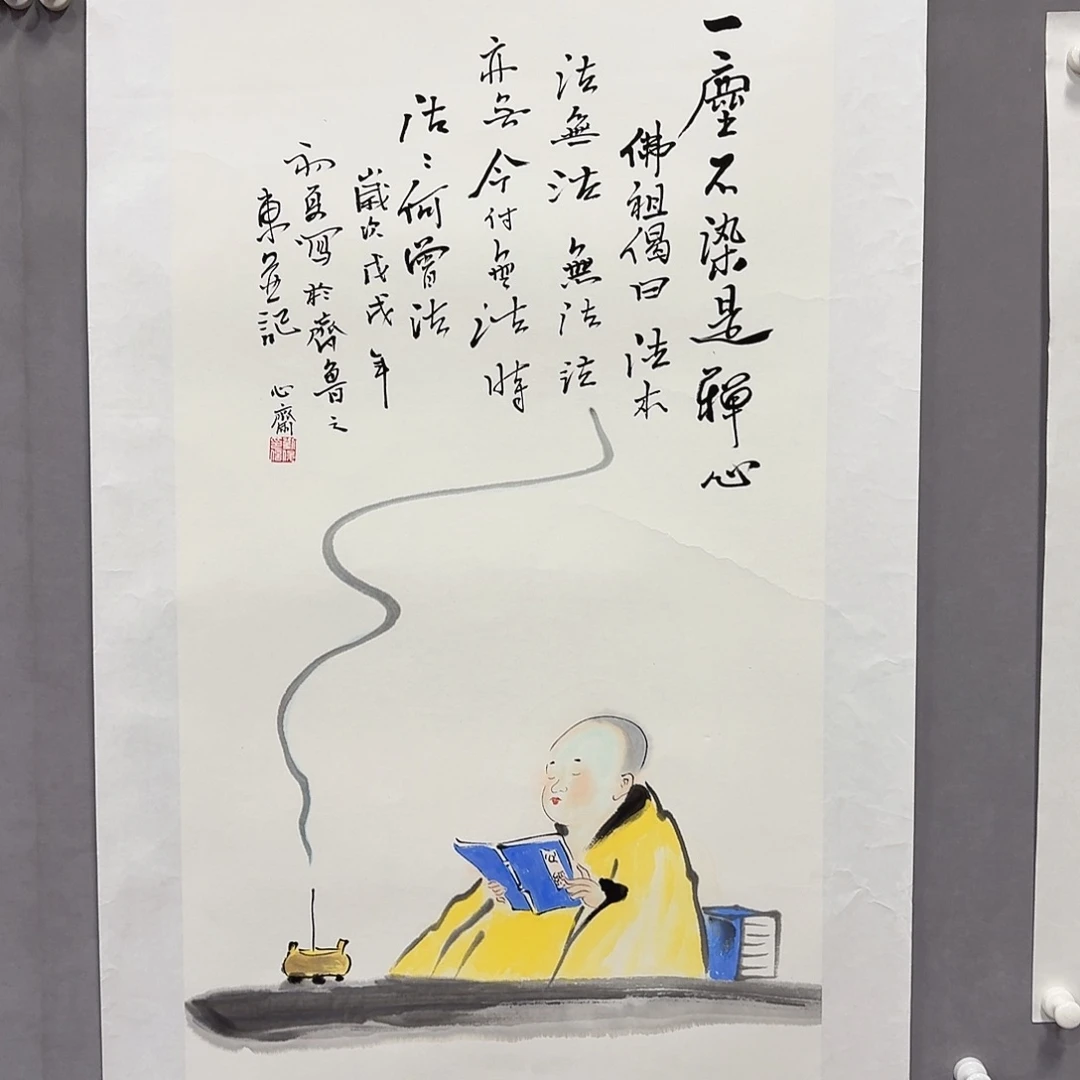 一塵不染是禪心
佛祖偈曰法本
法無法無法法
亦無今付無法時
法〻何曾法
歲次戊戌年
初夏寫於齊魯之
東並記
心齋
心經